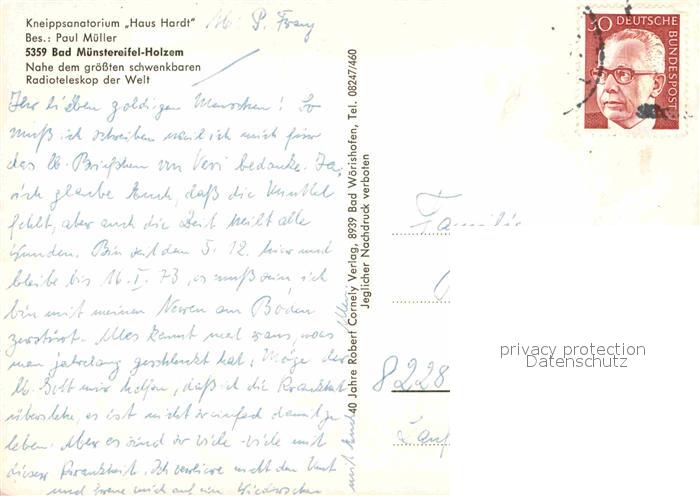 Kneippsanatorium „Haus Hardt"
Bes.: Paul Müller
5359 Bad Münstereifel-Holzem
Nahe dem größten schwenkbaren
Radioteleskop der Welt
P. Franz
Ihr lieben goldigen Menschen! So
muß ich schreiben weil ich mich für
das lb. Brieflein von Veri bedanke. Ja,
ich glaube Euch, daß die
fehlt, aber auch die Zeit heilt alle
Wunden. Bin seit dem 5. 12. hier und
bleibe bis 16. I. 73, es muß sein ich
bin mit meinen Nerven am Boden
zerstört. Alles kommt mal raus, was
man jahrelang geschluckt hat. Möge der
lb. Gott mir helfen, daß ich die Krankheit
überstehe, es ist nicht so einfach damit zu
leben. Aber es sind so viele - viele mit
dieser Krankheit. Ich verliere nicht den Mut
und freue mich auf ein Wiedersehen
mit Euch Allen
40 Jahre Robert Cornely Verlag, 8939 Bad Wörishofen, Tel. 08247/460
Jeglicher Nachdruck verboten
30 DEUTSCHE BUNDESPOST
Familie
8228
privacy protection
Datenschutz